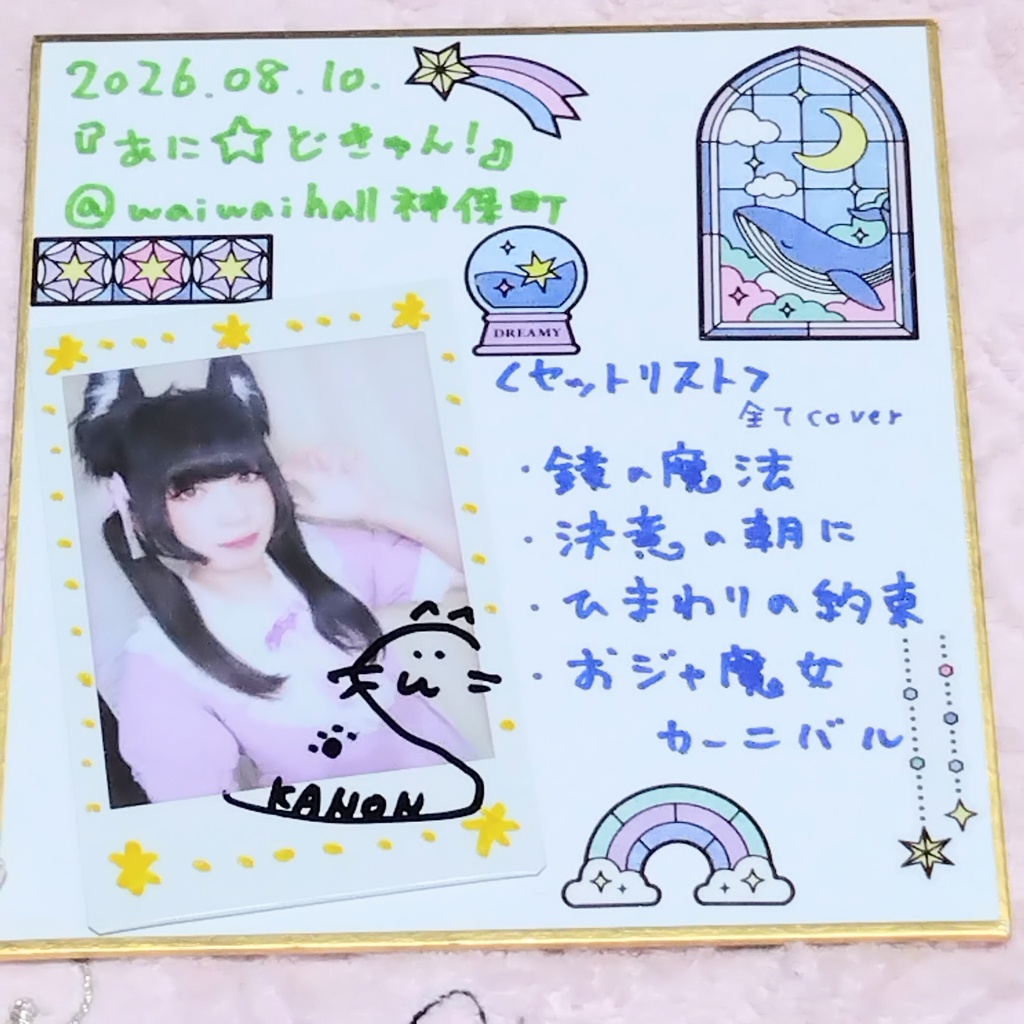 2026.08.10.
『あに☆どきゅん!』
@waiwaihall神保町
DREAMY
<セットリスト>
全てcover
・鏡の魔法
・決意の朝に
・ひまわりの約束
・おジャ魔女
カーニバル
KANON